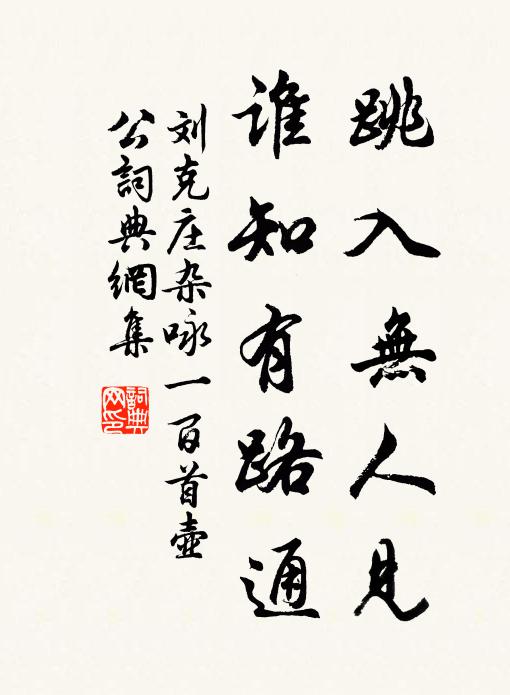 跳入無人見
誰知有路通
刘克庄杂咏一百首壶
公詞典網集
詞典网印